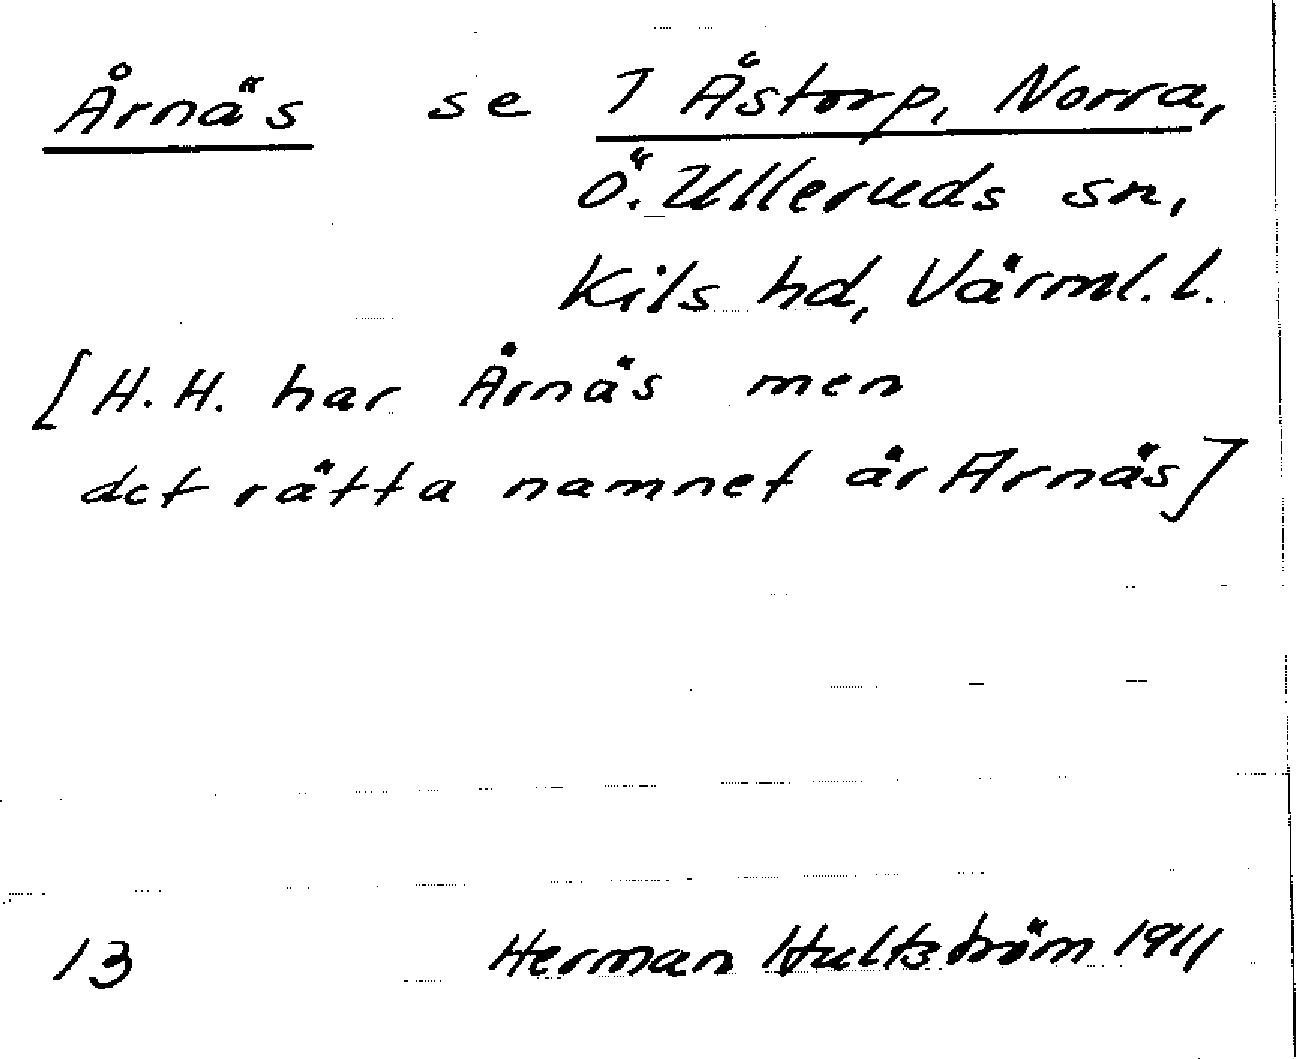 Årnäs se 1 Åstorp, Norra,
Ö. Ulleruds sn,
Kils hd, Värml. l.
[H. H. har Årnäs men
det rätta namnet är Arnäs]
13 Herman Hultström 1911